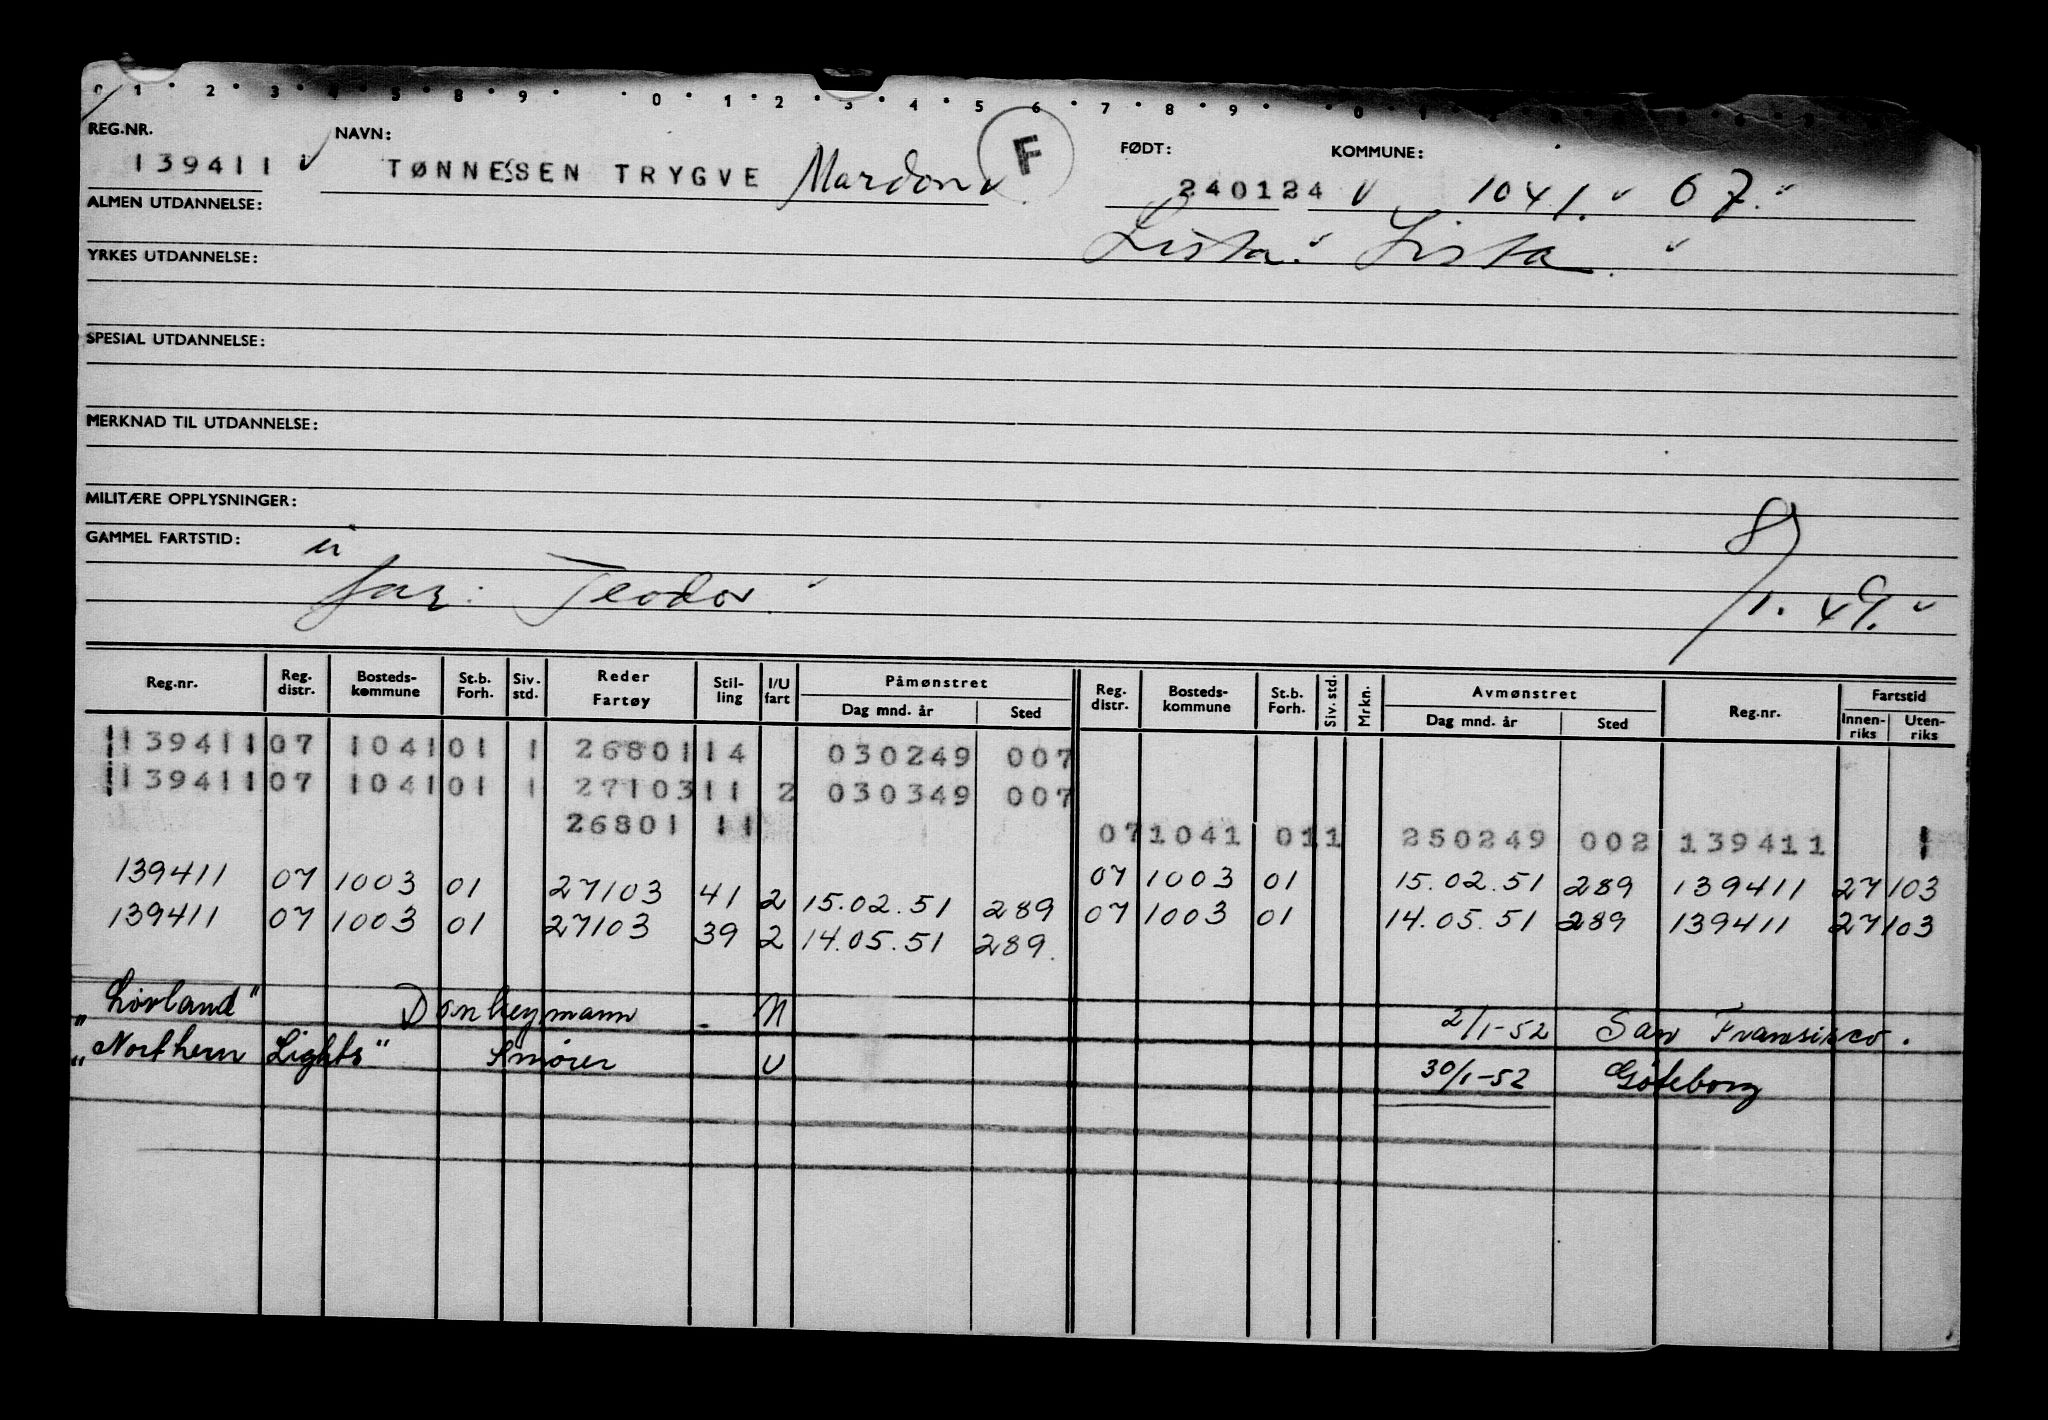 0 1 2 3 4 5 8 9 0 1 2 3 4 5 6 7 8 9 0 1
REG.NR. NAVN: F FØDT: KOMMUNE:
139411 TØNNESSEN TRYGVE Mardon 240124 1041. 07.
ALMEN UTDANNELSE: Lista. Lista.
YRKES UTDANNELSE:
SPESIAL UTDANNELSE:
MERKNAD TIL UTDANNELSE:
MILITÆRE OPPLYSNINGER:
GAMMEL FARTSTID:
far: Teodor. 8/1. 49.
Reg.nr. Reg. distr. Bosteds-kommune St.b. Forh. Siv. std. Reder Fartøy Stil-ling I/U fart Påmønstret Dag mnd. år Sted Reg. distr. Bosteds-kommune St.b. Forh. Siv. std. Mrkn. Avmønstret Dag mnd. år Sted Reg.nr. Fartstid Innen-riks Uten-riks
139411 07 1041 01 1 26801 14 030249 007
139411 07 1041 01 1 27103 11 2 030349 007
26801 11 07 1041 01 1 250249 002 139411 1
139411 07 1003 01 27103 41 2 15.02.51 289 07 1003 01 15.02.51 289 139411 27103
139411 07 1003 01 27103 39 2 14.05.51 289. 07 1003 01 14.05.51 289 139411 27103
„Lovland" Donkeymann - N 2/1-52 San Fransisco.
„Northern Lights" Smører U 30/1-52 Göteborg